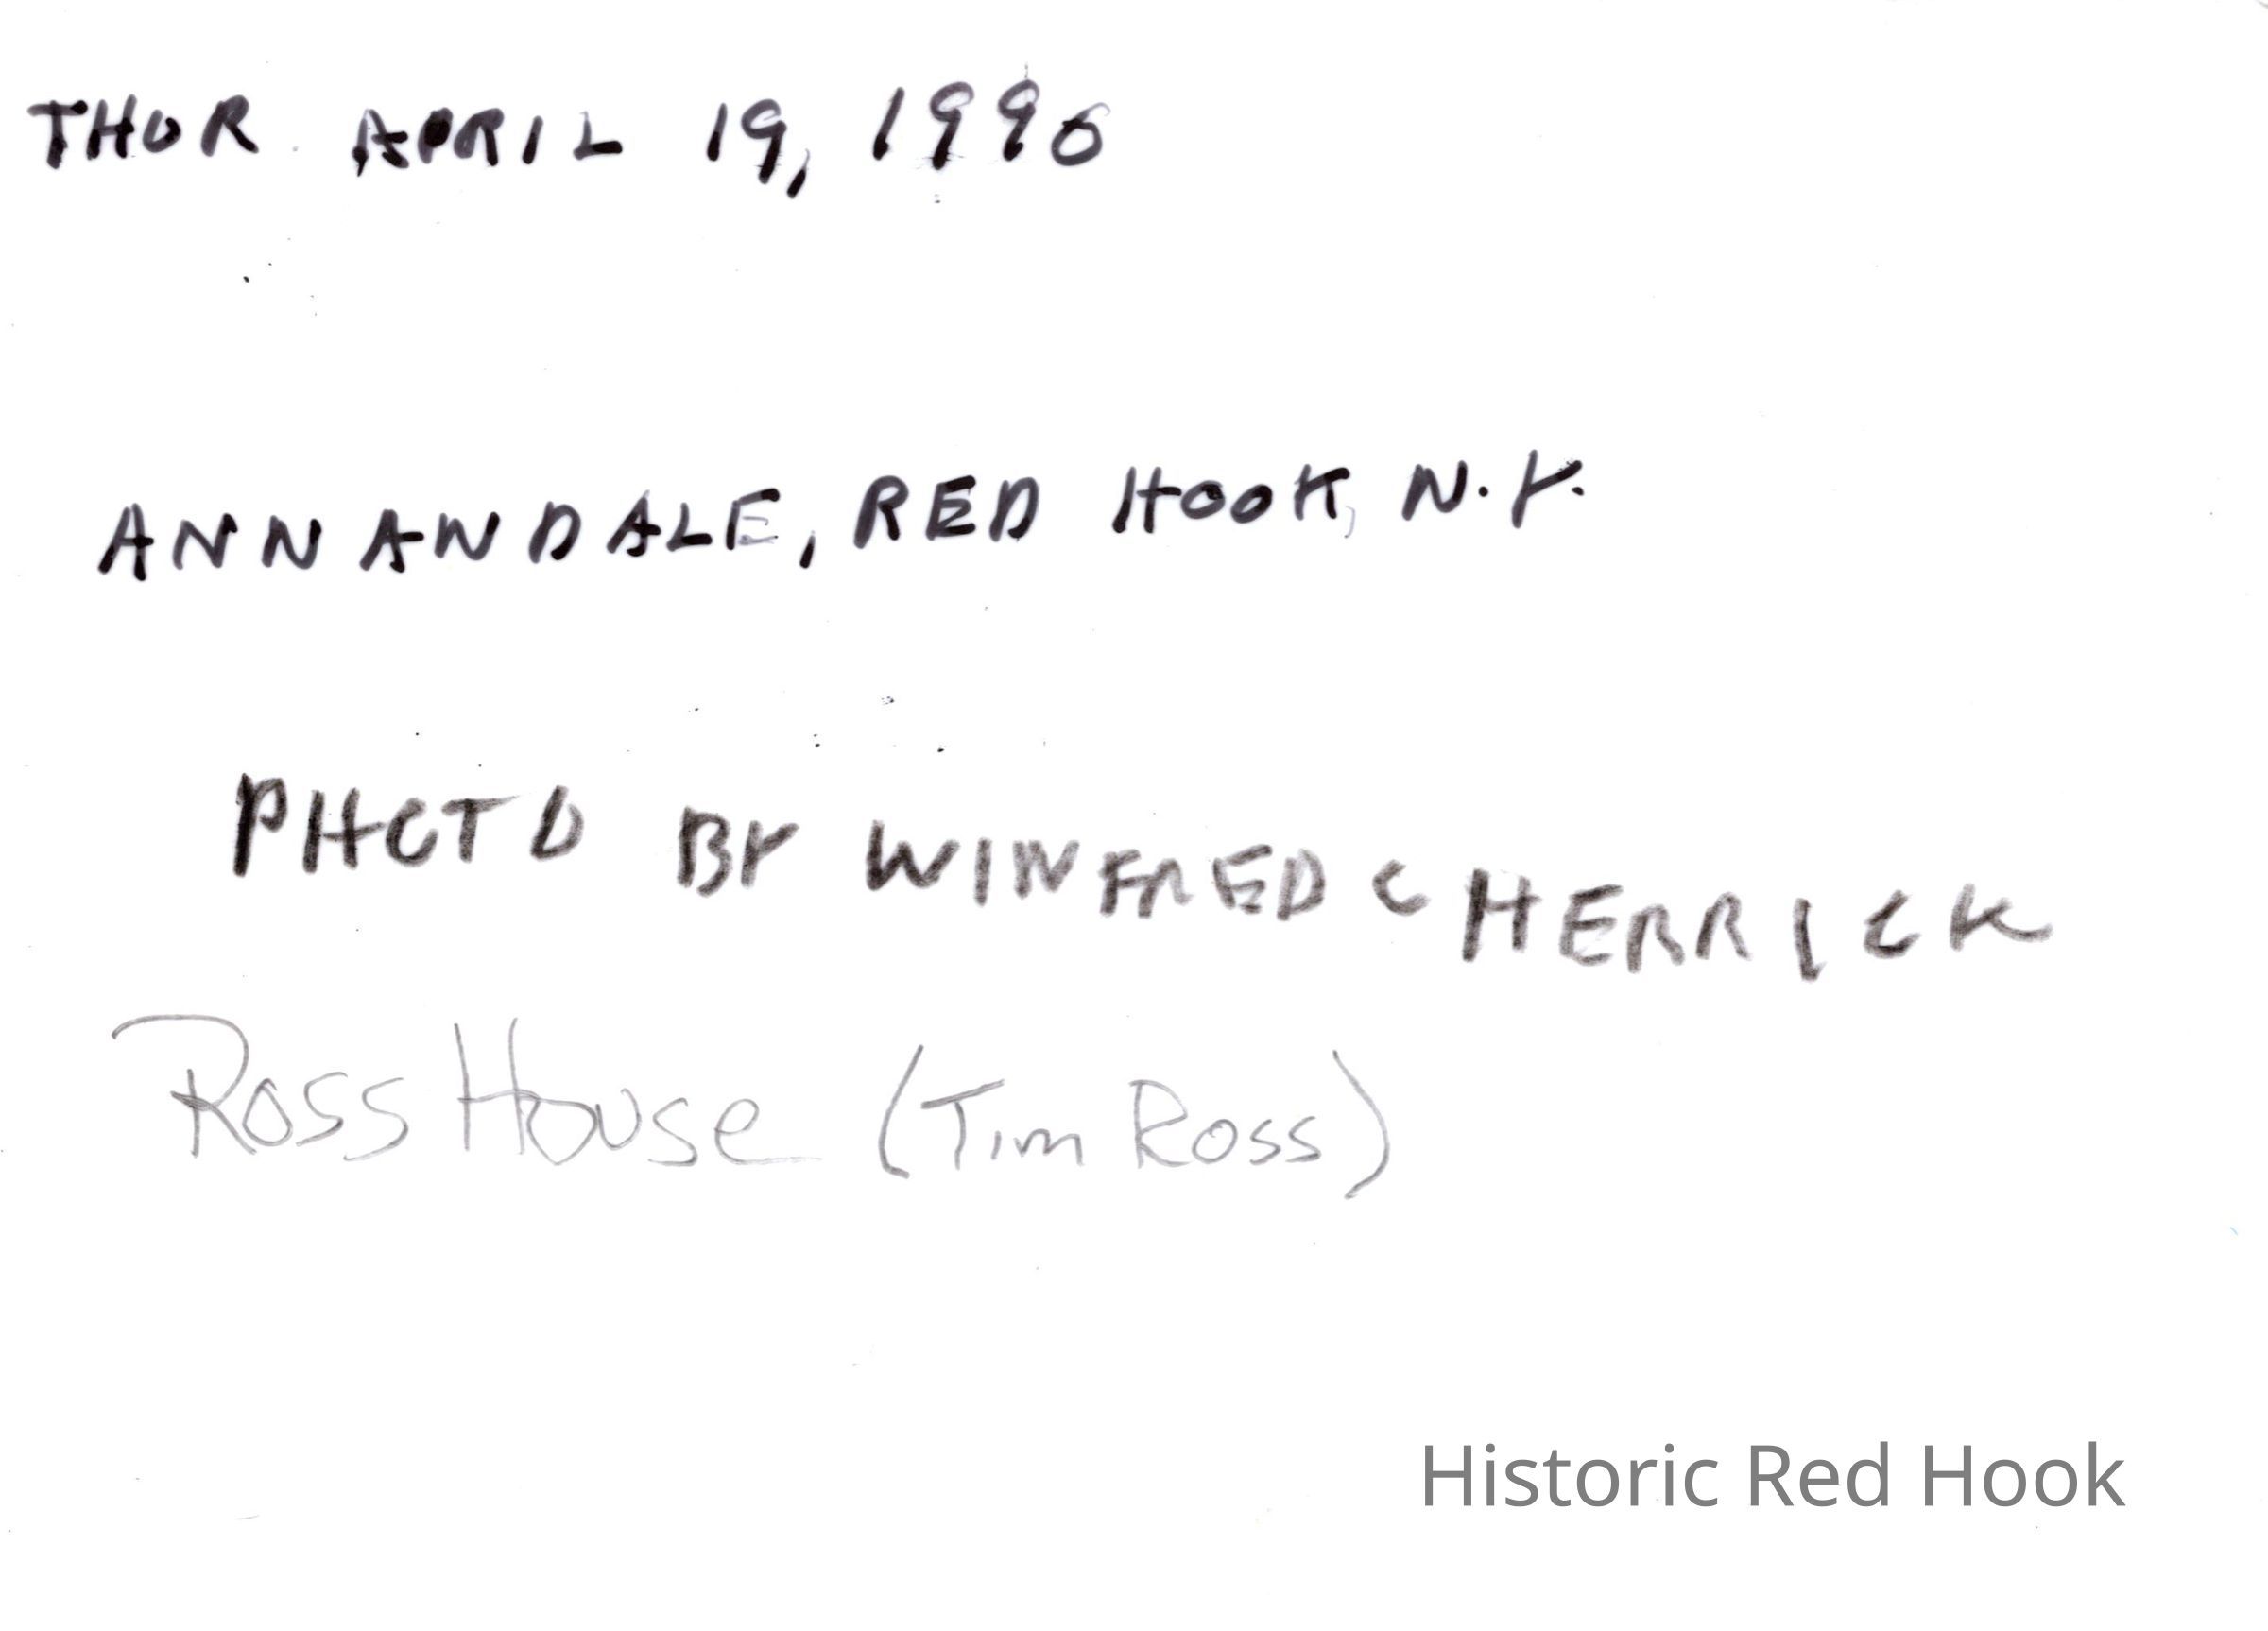 THUR. APRIL 19, 1990
ANNANDALE, RED HOOK, N.Y.
PHOTO BY WINFRED C HERRICK
Ross House (Tim Ross)
Historic Red Hook